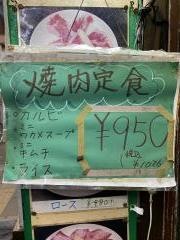 焼肉定食
・カルビ
・ミニ
ワカメスープ
・ミニ
キムチ
・ライス
¥950
税込
¥1026
ロース ¥980